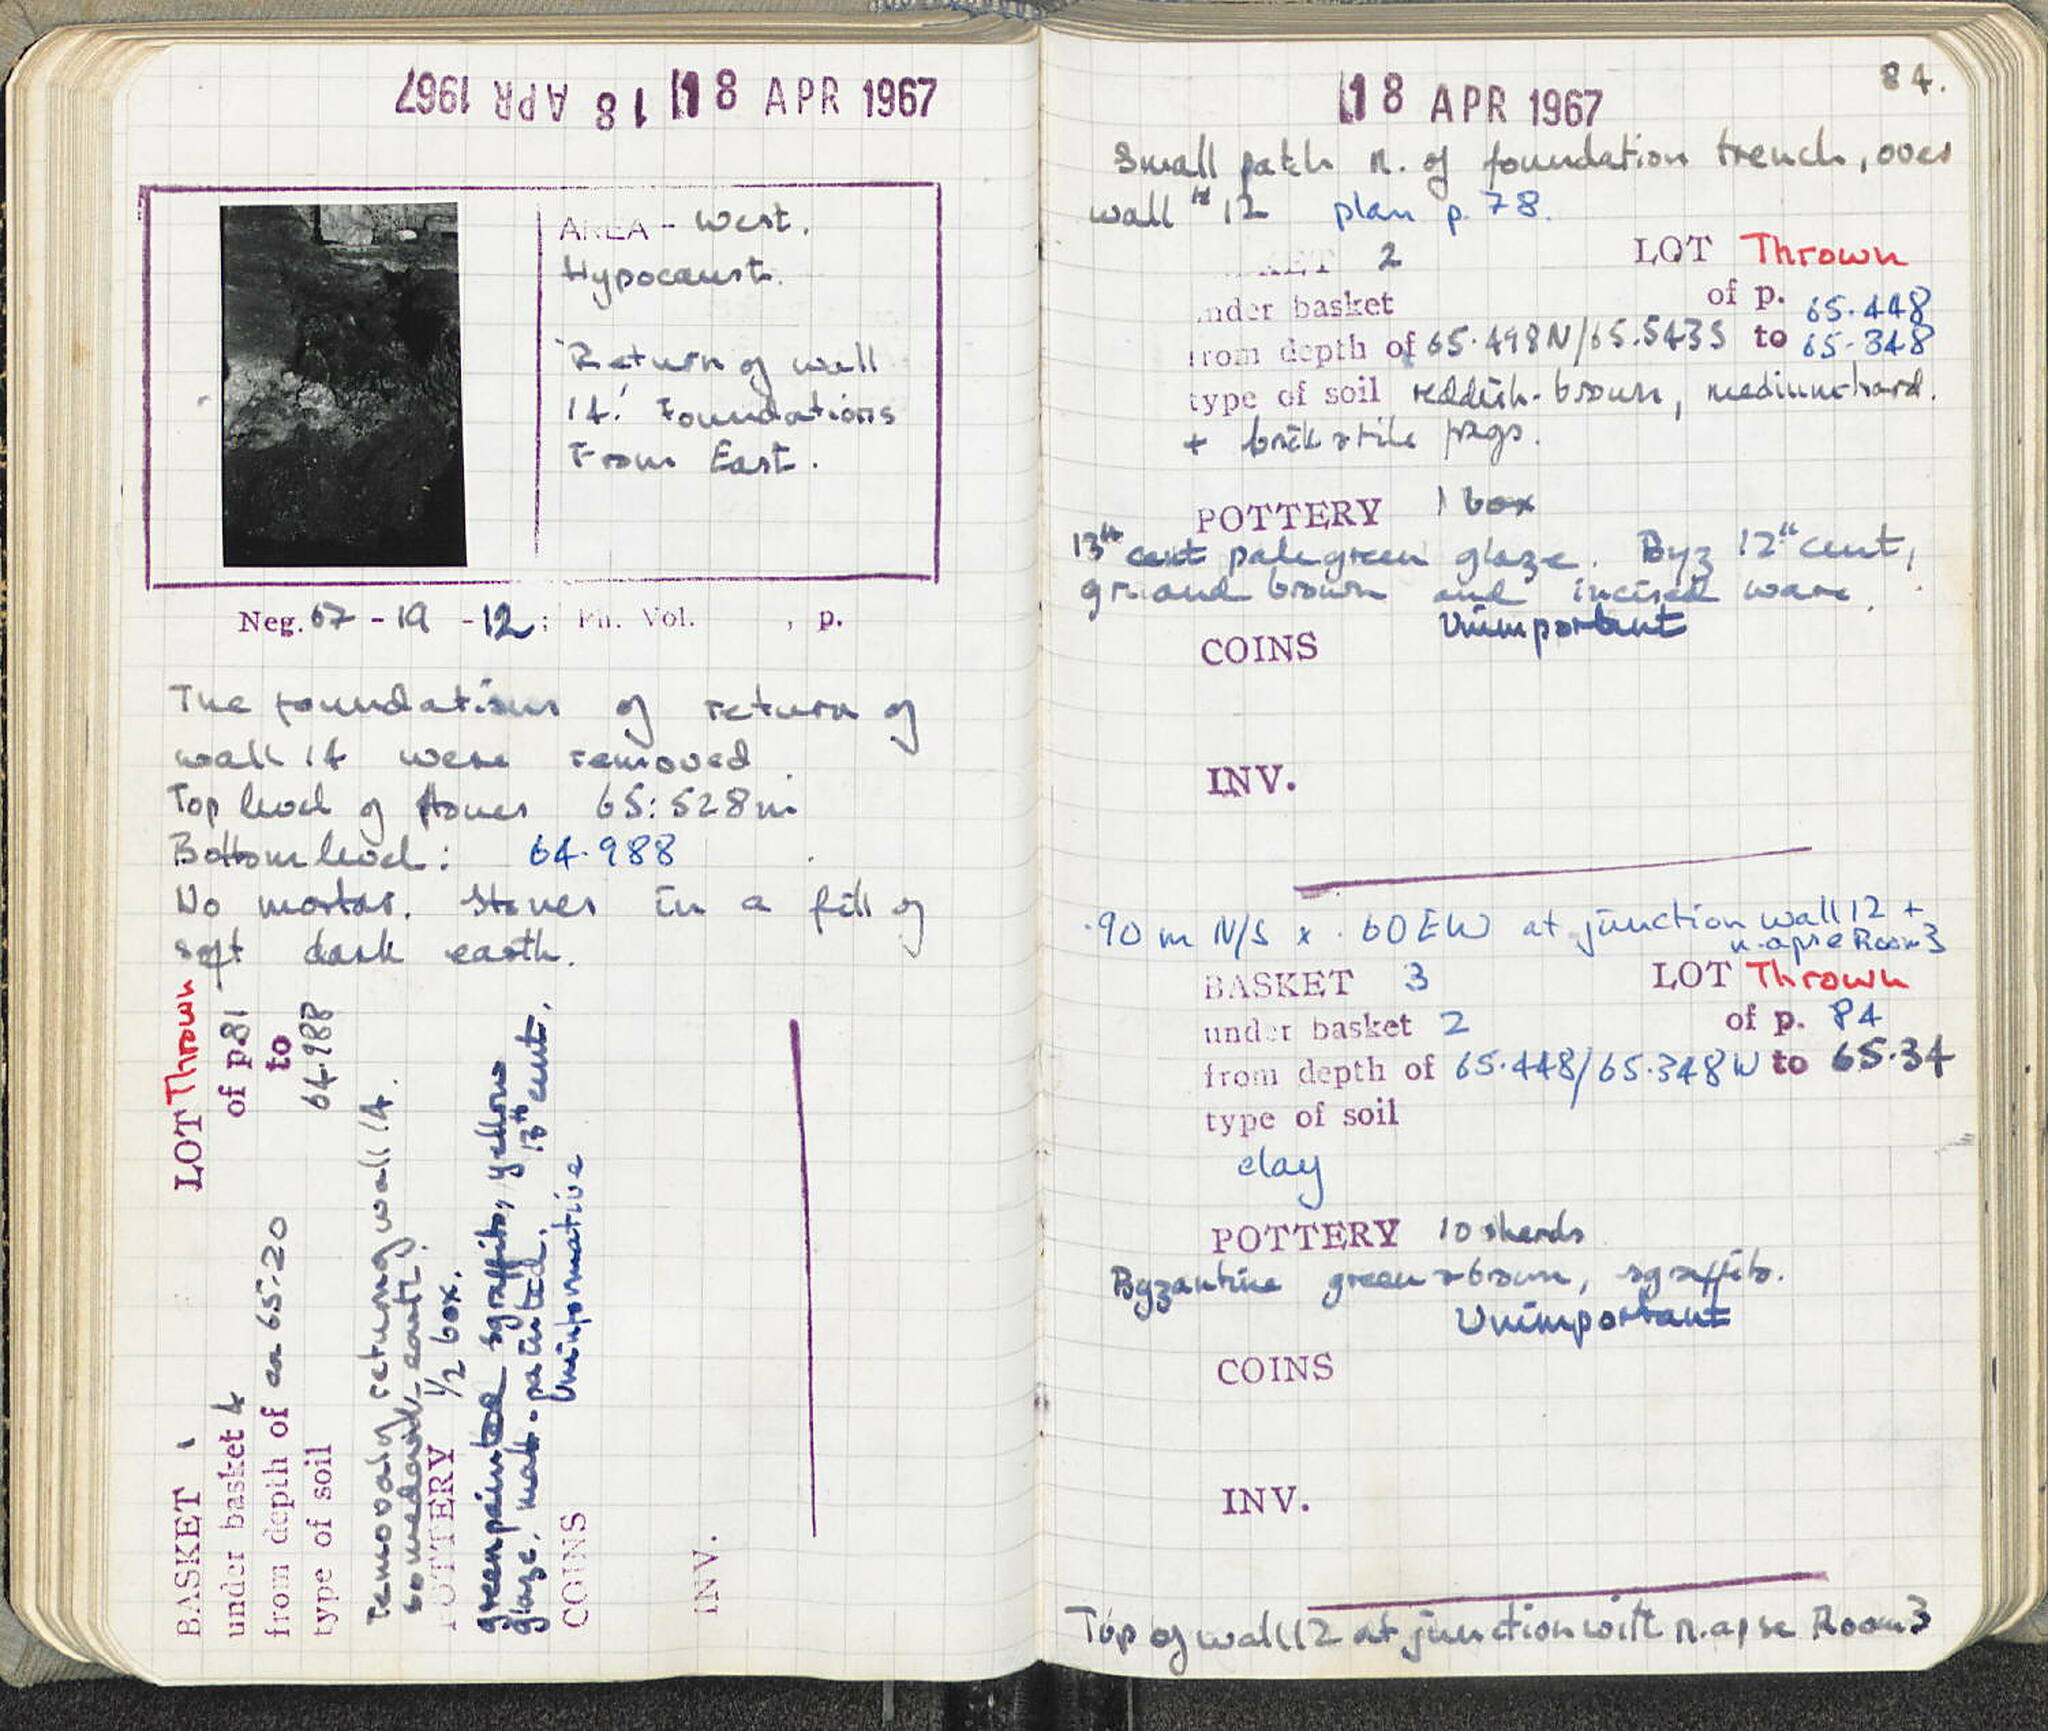 18 APR 1967
18 APR 1967
AREA - West.
Hypocaust.
Return of wall
14. Foundations
From East.
Neg. 67 - 19 - 12; Ph. Vol. , p.
The foundations of return of
wall 14 were removed.
Top level of stones 65.528m
Bottom level: 64.988
No mortar. Stones in a fill of
soft dark earth.
BASKET 1 LOT Thrown
under basket 4 of p. 81
from depth of ca 65.20 to 64.988
type of soil
removal of returning wall 14.
some dark earth.
POTTERY 1/2 box.
green painted sgraffito, yellow
glaze, matt-painted. 13th cent.
Uninformative
COINS
INV.
84.
18 APR 1967
Small patch N. of foundation trench, over
wall # 12 plan p. 78.
BASKET 2 LOT Thrown
under basket of p.
from depth of 65.498N/65.543S to 65.448
65.348
type of soil reddish-brown, medium-hard.
+ brick + tile frags.
POTTERY 1 box
13th cent pale green glaze. Byz 12th cent,
gr. and brown and incised ware.
Unimportant
COINS
INV.
.90 m N/S x .60 EW at junction wall 12 +
n. apse Room 3
BASKET 3 LOT Thrown
under basket 2 of p. 84
from depth of 65.448/65.348W to 65.34
type of soil
clay
POTTERY 10 sherds
Byzantine green + brown, sgraffito.
Unimportant
COINS
INV.
Top of wall 12 at junction with N. apse Room 3